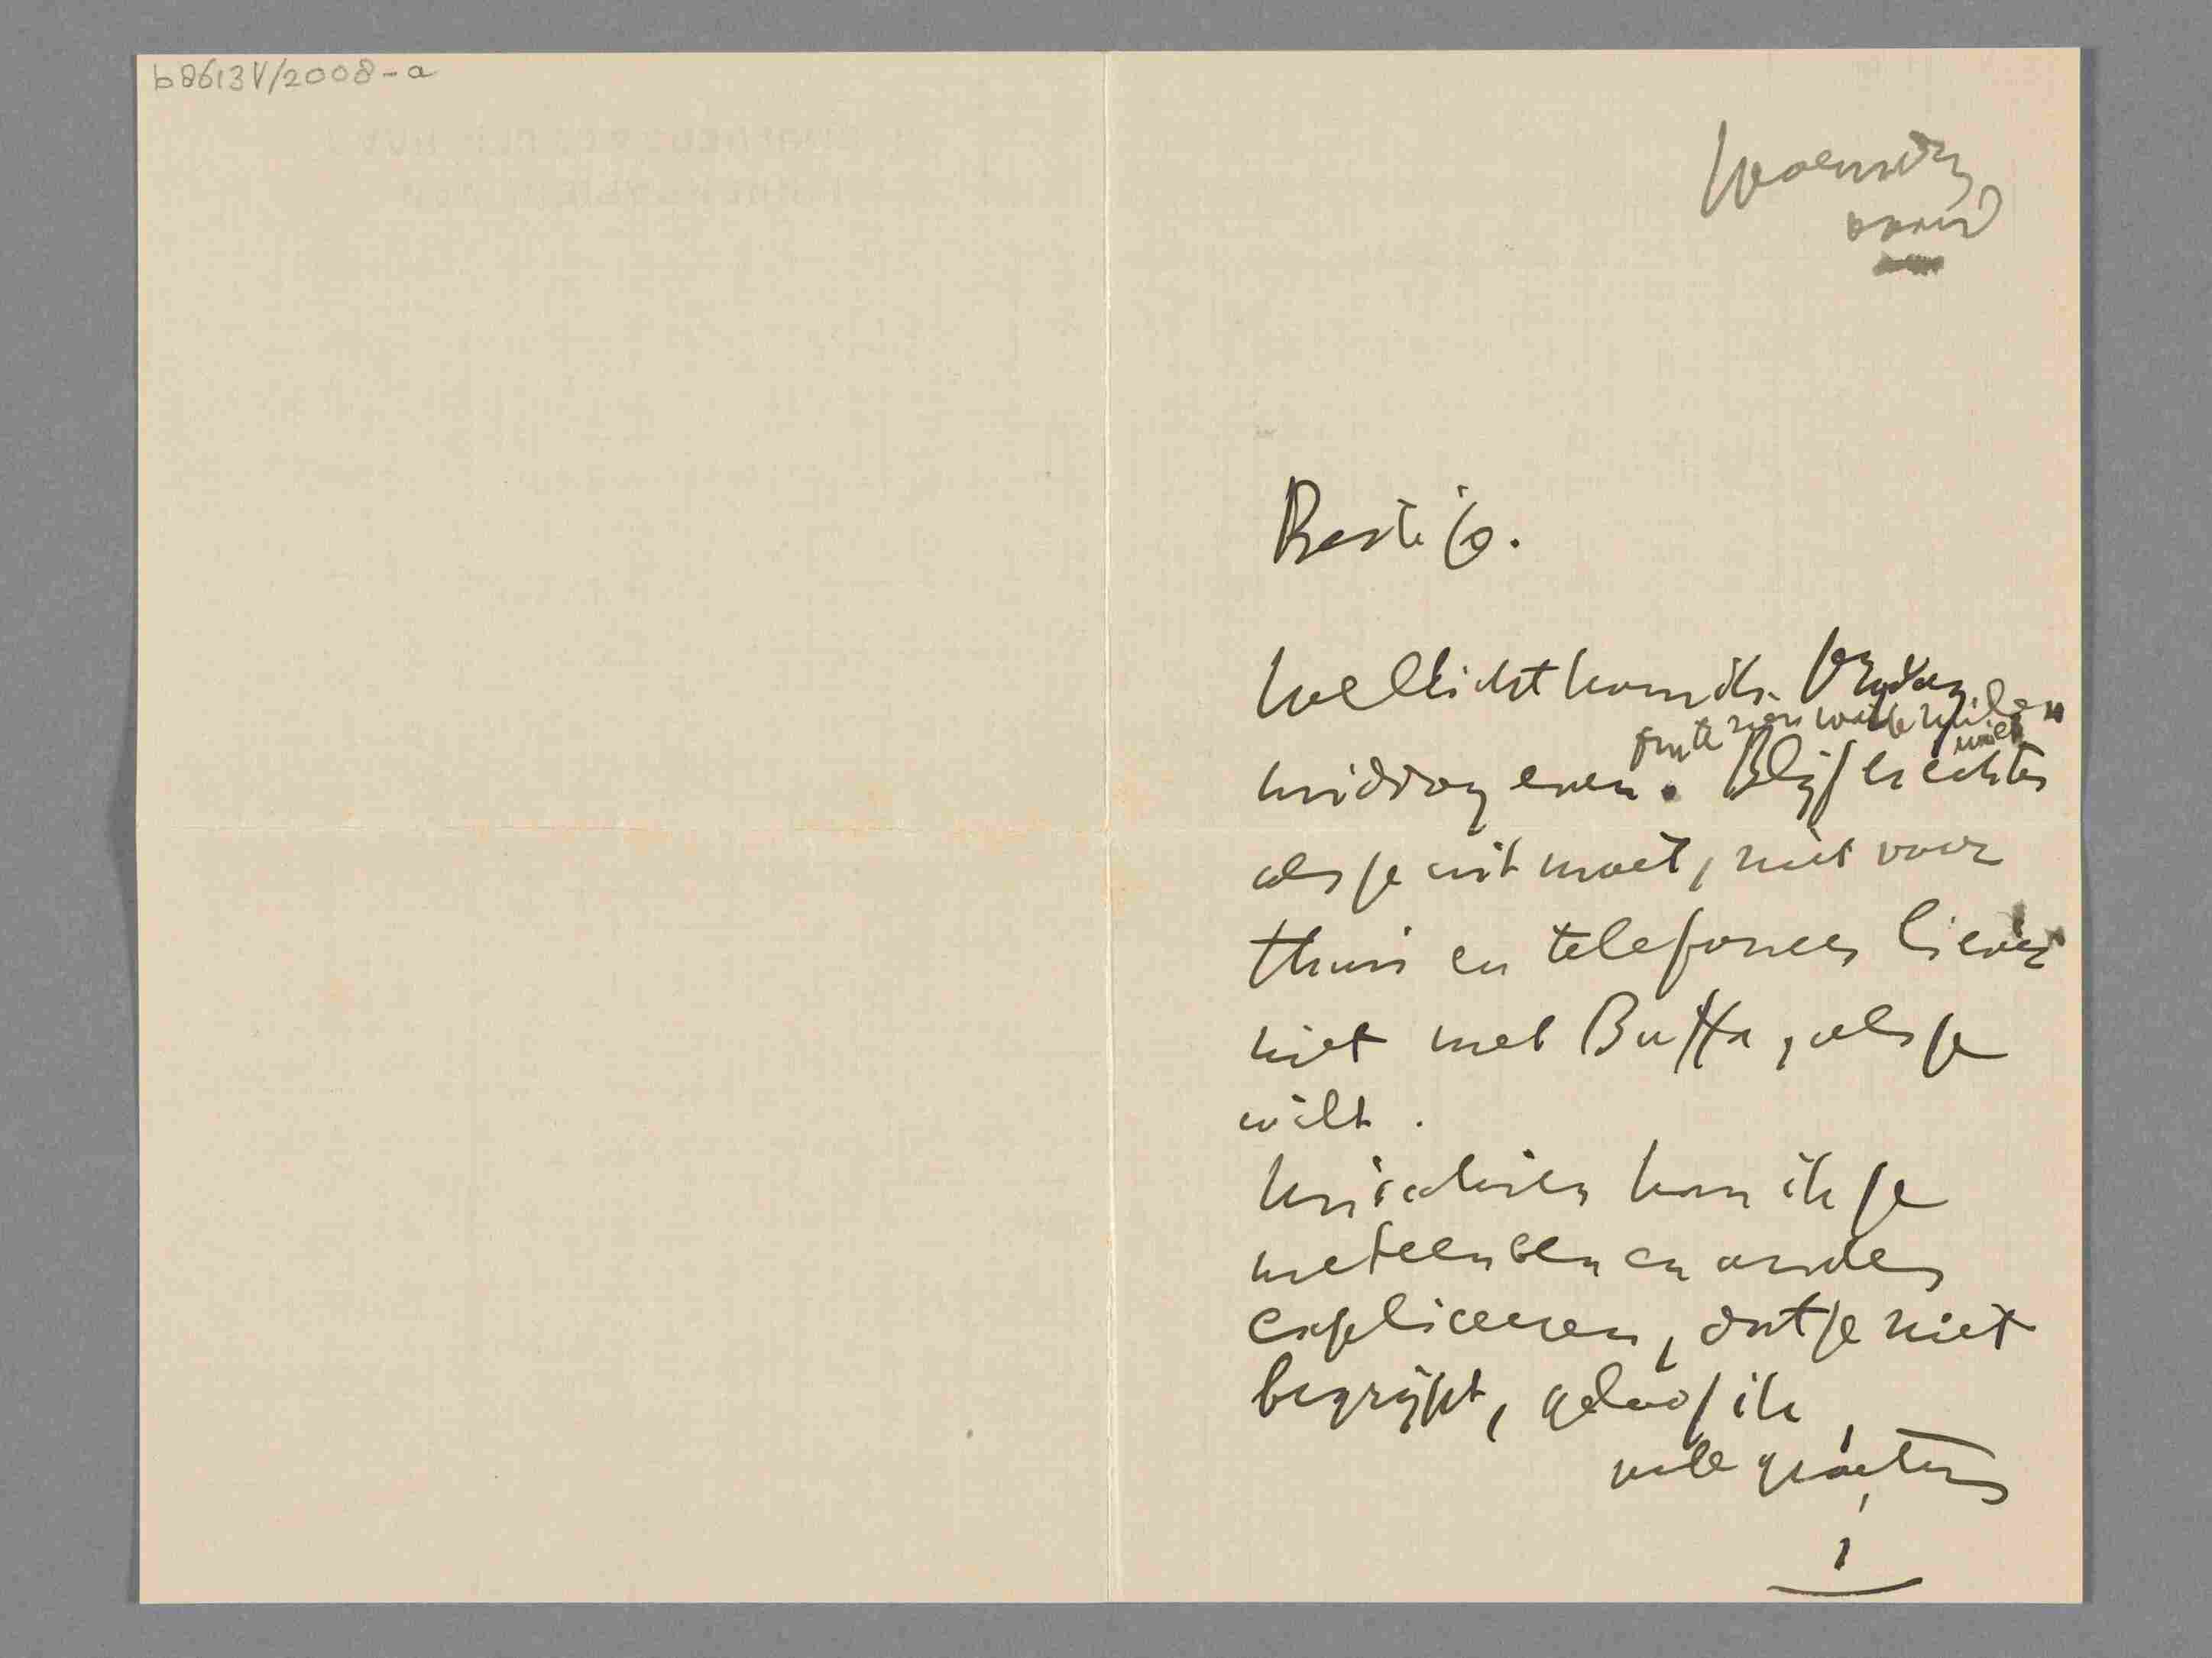 b8613V/2008-a
Woensdag
avond
Beste Jo.
Wellicht kom ik Vrijdag
om te zien wat je ruilen
wilt
middag even. Blijf er echter
als je uit moet, niet voor
thuis en telefoneer liever
niet met Buffa, als je
wilt.
Misschien kan ik je
meteen een en ander
expliceeren, dat je niet
begrijpt, geloof ik,
vele groeten